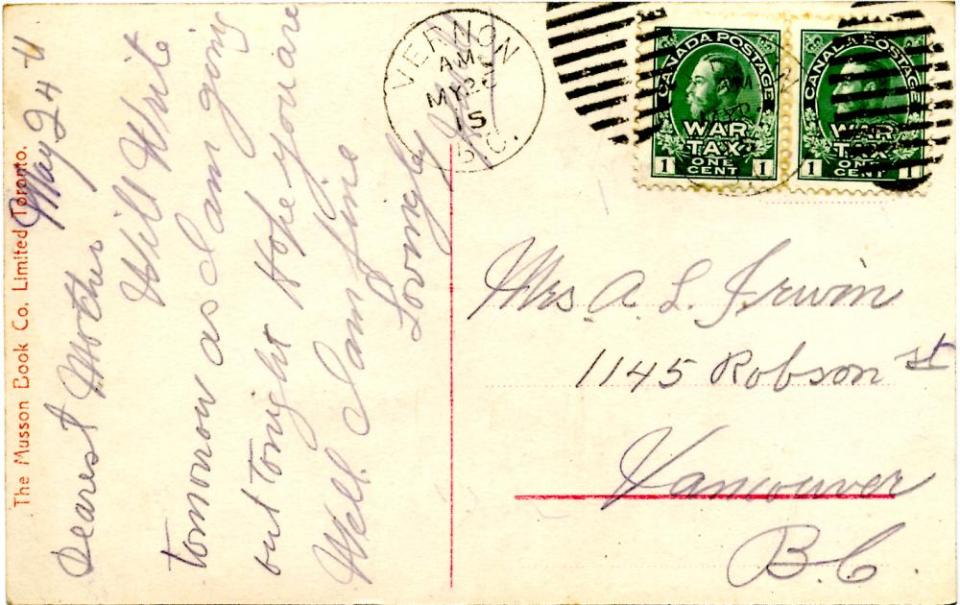 The Musson Book Co. Limited Toronto.
May 24th
Dearest Mother
Will Write
tomorrow as I am going
out tonight Hope you are
Well. I am fine
Lovingly
VERNON
AM
MY 2
15
B.C.
CANADA POSTAGE
WAR
TAX
ONE
CENT
1 1
CANADA POSTAGE
WAR
TAX
ONE
CENT
1 1
Mrs. A. L. Irwin
1145 Robson St
Vancouver
B.C.